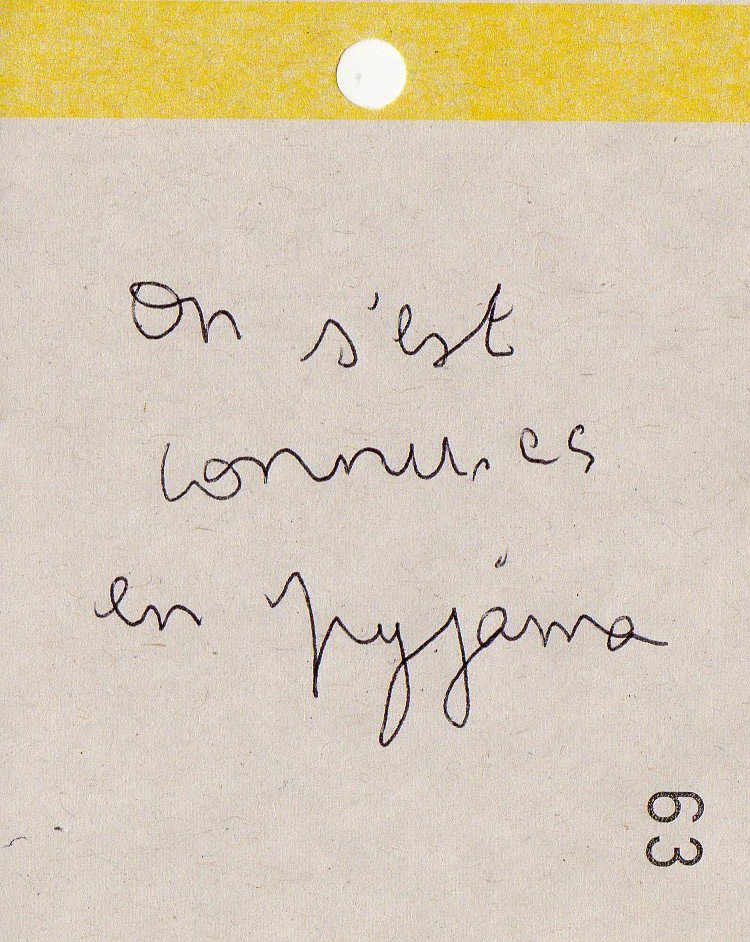 On s'est
connu.es
en pyjama
63